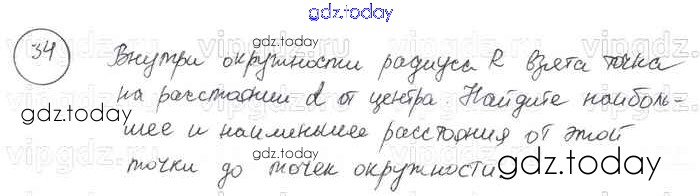 gdz.today
34 Внутри окружности радиуса R взята точка
gdz.today
на расстоянии d от центра. Найдите наиболь-
gdz.today
шее и наименьшее расстояния от этой
gdz.today
точки до точек окружности
gdz.today
vipgdz.ru